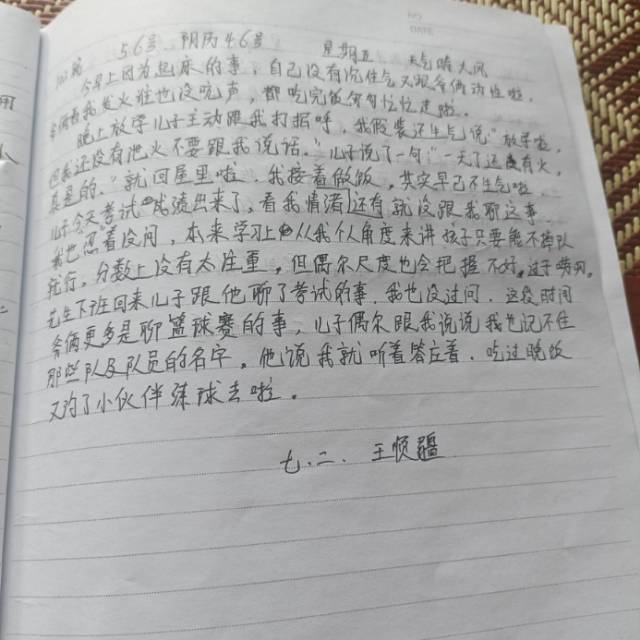 5.6号 阴历4.6号 星期五 天气晴大风
今早上因为起床的事，自己没有沉住气又跟爷俩发位啦，
爷俩看我发火谁也没吭声，都吃完饭匆匆忙忙走啦。
晚上放学儿子主动跟我打招呼，我假装还生气说"放学啦，
但我还没有泄火不要跟我说话。"儿子说了一句："一天了还有火，
真是的。"就回屋里啦，我接着做饭，其实早已不生气啦
儿子今天考试成绩出来了，看我情绪还有就没跟我聊这事
我也忍着没问，本来学习上从我个人角度来讲孩子只要能不掉队
就行，分数上没有太注重，但偶尔尺度也会把握不好。
先生下班回来儿子跟他聊了考试的事，我也没过问，这段时间
爷俩更多是聊篮球赛的事，儿子偶尔跟我说说我也记不住
那些队及队员的名字，他说我就听着答应着，吃过晚饭
又约了小伙伴练球去啦。
七.二. 王恒疆